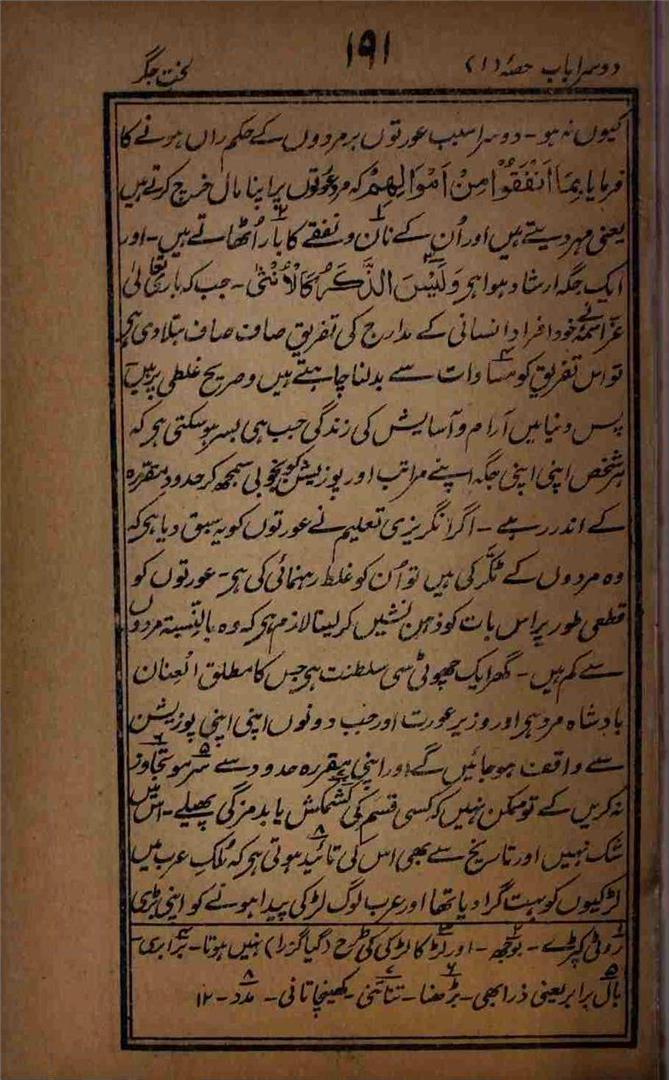 دوسرا باب حصۂ (۱)
۱۹۱
لخت جگر
کیوں نہ ہو - دوسرا سبب عورتوں پر مردوں کے حکم راں ہونے کا
فرمایا بِمَا اَنْفَقُوْا مِنْ اَمْوَالِهِمْ کہ مرد عورتوں پر اپنا مال خرچ کرتے ہیں
یعنی مہر دیتے ہیں اور اُن کے نان و نفقے ۱ کا بار ۲ اُٹھاتے ہیں - اور
ایک جگہ ارشاد ہوا ہی وَلَيْسَ الذَّكَرُ كَالْاُنْثٰى ۳ - جب کہ باری تعالیٰ
عزّ اسمہٗ نے خود افرادِ انسانی کے مدارج کی تفریق صاف صاف بتلا دی ہی
تو اس تفریق کو مساوات ۴ سے بدلنا چاہتے ہیں وہ صریح غلطی پر ہیں
پس دنیا میں آرام و آسایش کی زندگی جب ہی بسر ہو سکتی ہی کہ
ہر شخص اپنی اپنی جگہ اپنے مراتب اور پوزیشن کو بخوبی سمجھ کر حدودِ مقررہ
کے اندر رہے - اگر انگریزی تعلیم نے عورتوں کو یہ سبق دیا ہی کہ
وہ مردوں کے ٹکّر کی ہیں تو اُن کو غلط رہنمائی کی ہی - عورتوں کو
قطعی طور پر اس بات کو ذہن نشیں کر لینا لازم ہی کہ وہ بالنسبۃ مردوں
سے کم ہیں - گھر ایک چھوٹی سی سلطنت ہی جس کا مطلق العنان
بادشاہ مرد ہی اور وزیر عورت اور جب دونوں اپنی اپنی پوزیشن
سے واقف ہو جائیں گے اور اپنی مقررہ حدود سے سرِ مو ۵ تجاوز ۶
نہ کریں گے تو ممکن نہیں کہ کسی قسم کی کشمکش ۷ یا بدمزگی پھیلے - اس میں
شک نہیں اور تاریخ سے بھی اس کی تائید ۸ ہوتی ہی کہ مُلکِ عرب میں
لڑکیوں کو بہت گرا دیا تھا اور عرب لوگ لڑکی پیدا ہونے کو اپنی بڑی
۱ روٹی کپڑے - ۲ بوجھ - ۳ اور لڑکا لڑکی کی طرح (گیا گزرا) نہیں ہوتا - ۴ برابری -
۵ بال برابر یعنی ذرا بھی - ۶ بڑھنا - ۷ تناتنی - کھینچا تانی - ۸ مدد - ۱۲